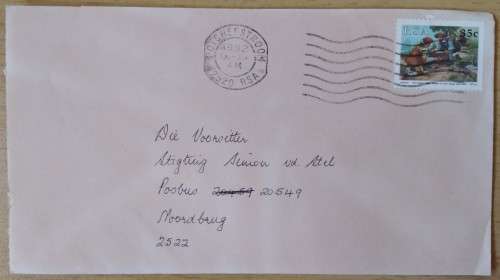 POTCHEFSTROOM
1992
2520 RSA
RSA
35c
Die Voorsitter
Stigting Simon vd Stel
Posbus 20459 20549
Noordbrug
2522